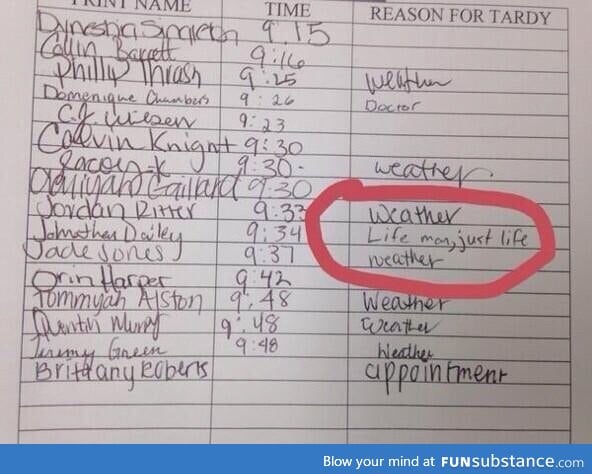 PRINT NAME TIME REASON FOR TARDY
Dyneshia Singleton 9:15
Collin Barrett 9:16
Philly Thrash 9:25 weather
Domenique Chambers 9:26 Doctor
9:23
Calvin Knight 9:30
9:30 weather
Gaillard 9:30
Jordan Ritter 9:33 Weather
Johnathan Dailey 9:34 Life man, just life
Jade Jones 9:37 weather
Orin Harper 9:42
Tommyah Alston 9:48 Weather
Quentin 9:48 Weather
Jeremy Green 9:48 Weather
Brittany Roberts appointment
Blow your mind at FUNsubstance.com